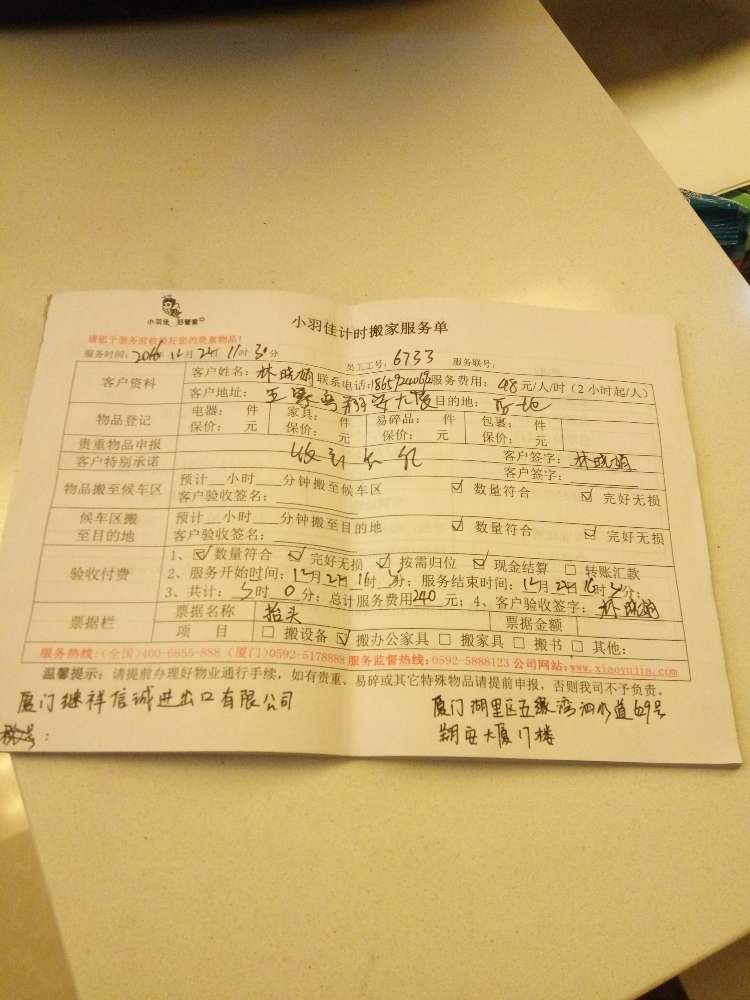 小羽佳 好管家
小羽佳计时搬家服务单
请您于服务前收拾好您的贵重物品！
服务时间：2016年12月24日11时30分 员工工号：6733 服务联号：
客户资料 客户姓名：林晓娟 联系电话：18659240692 服务费用：48元/人/时（2小时起/人）
客户地址： 翔安大厦 目的地：
物品登记 电器： 件 家具： 件 易碎品： 件 包裹： 件
保价： 元 保价： 元 保价： 元 保价： 元
贵重物品申报 客户签字：林晓娟
客户特别承诺 客户签字：
物品搬至候车区 预计__小时__分钟搬至候车区 ☑ 数量符合 ☑ 完好无损
客户验收签名：
候车区搬至目的地 预计__小时__分钟搬至目的地 ☑ 数量符合 ☑ 完好无损
客户验收签名：
验收付费 1、☑数量符合 ☑完好无损 ☑按需归位 ☑现金结算 □转账汇款
2、服务开始时间：12月24日11时 分；服务结束时间：12月24日16时 分；
3、共计：5时0分；总计服务费用240元；4、客户验收签字：林晓娟
票据栏 票据名称 抬头 票据金额
项 目 □搬设备 ☑搬办公家具 □搬家具 □搬书 □其他：
服务热线：(全国)400-6655-888 (厦门)0592-5178888 服务监督热线：0592-5888123 公司网站：www.xiaoyujia.com
温馨提示：请提前办理好物业通行手续，如有贵重、易碎或其它特殊物品请提前申报，否则我司不予负责。
厦门继祥信诚进出口有限公司
税号：
厦门湖里区五缘湾泗水道629号
翔安大厦 楼